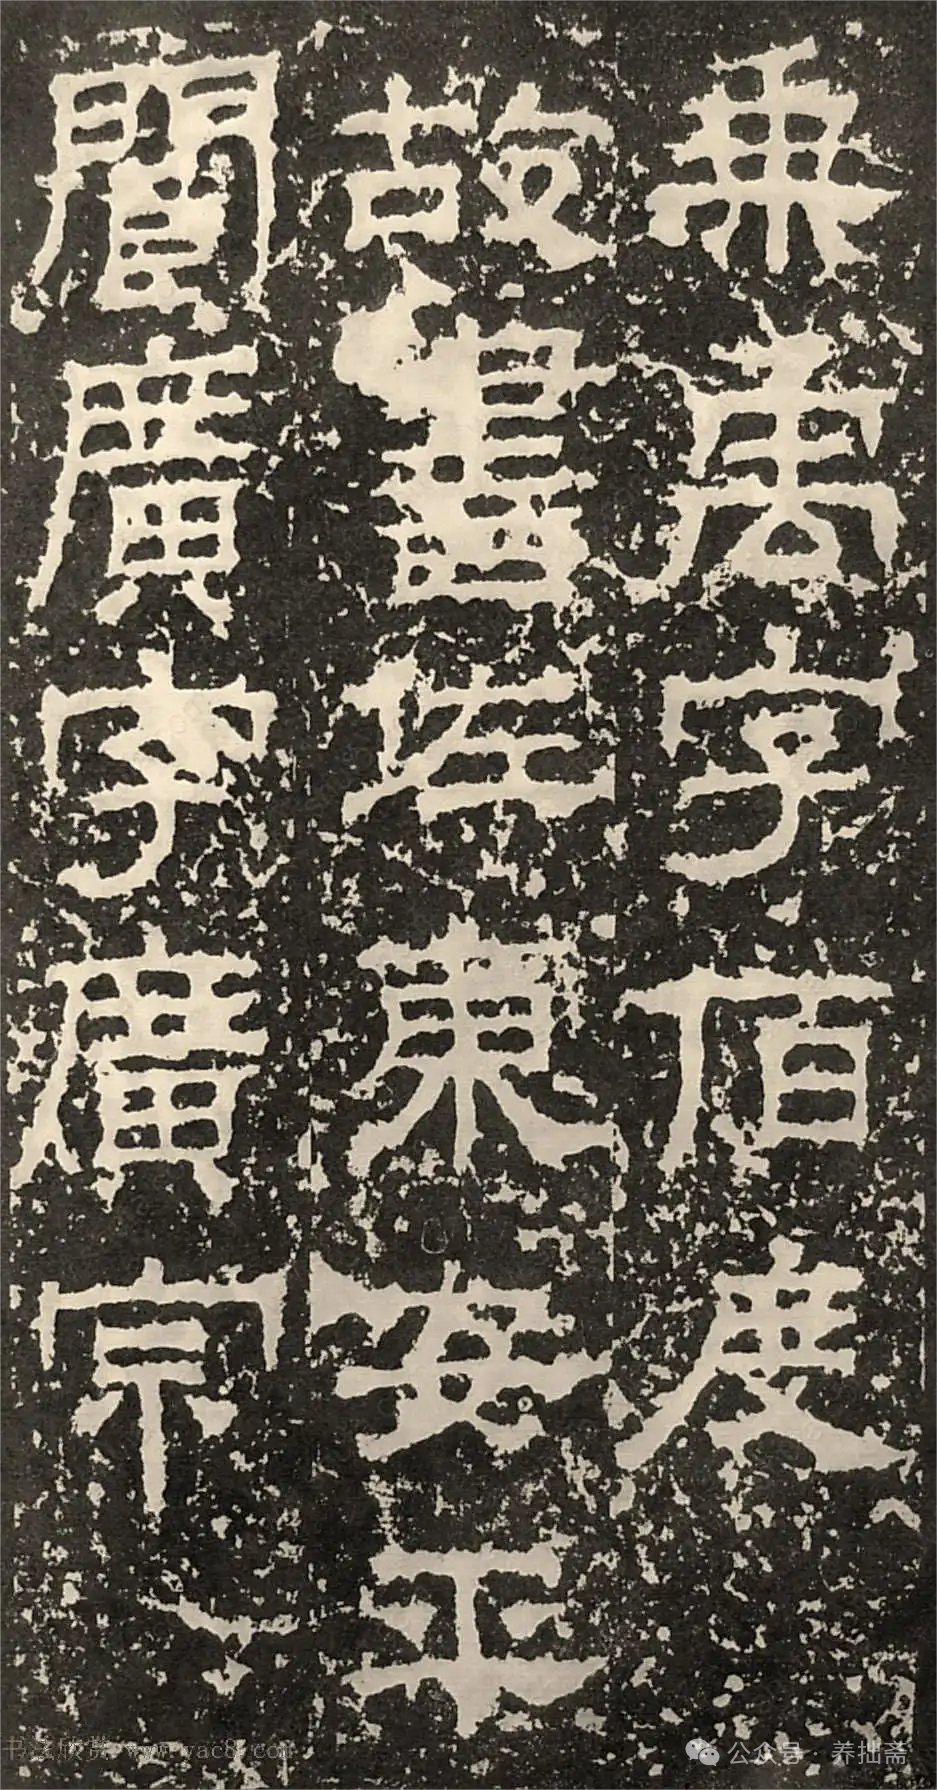 乘禹字佰度
故書佐東安平
閻廣字廣宗
书法欣赏 www.yac8.com
公众号 · 养拙斋